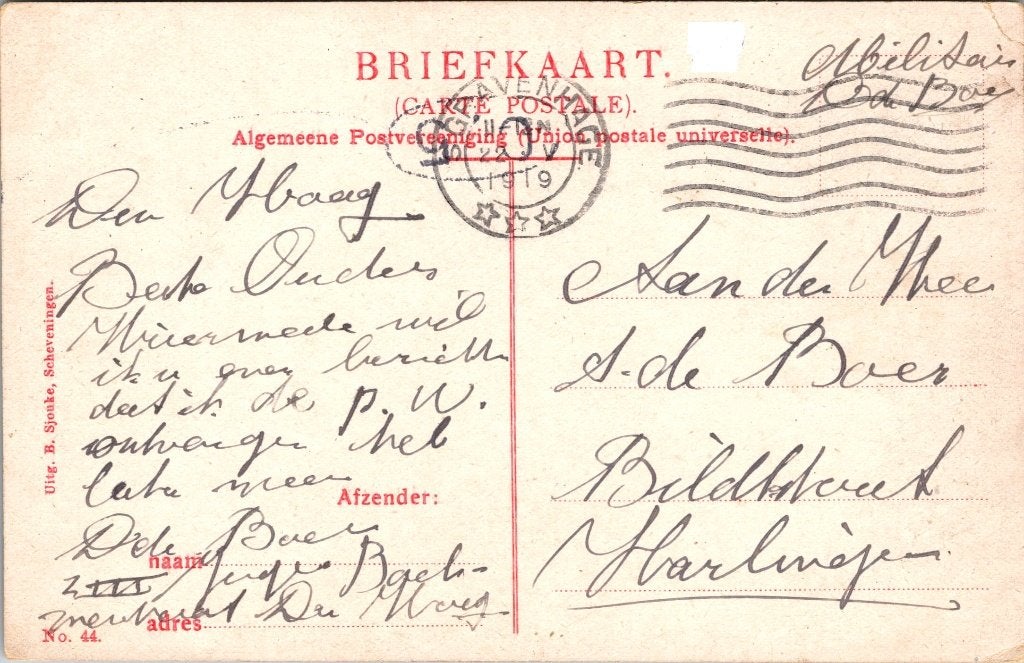 BRIEFKAART.
(CARTE POSTALE).
Algemeene Postvereeniging (Union postale universelle).
'S GRAVENHAGE
22 V
1919
Militair
D de Boer
Den Haag
Beste Ouders
Hiermede wil
ik u even berichten
dat ik de p. W.
ontvangen heb
later meer
Afzender:
D de Boer
naam
Den Haag
adres
Aan den Heer
S. de Boer
Bildtstraat
Harlingen
Uitg. B. Sjouke, Scheveningen.
No. 44.